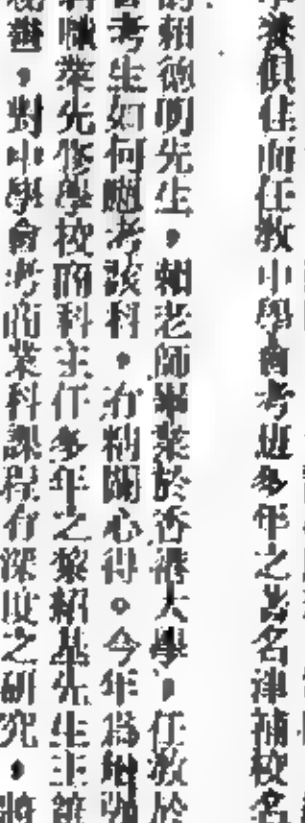 養俱佳而任教中學會考班多年之著名津補校名
賴德明先生，賴老師畢業於香港大學，任教於
考生如何應考該科，有精闢心得。今年為增強
職業先修學校商科主任多年之黎紹基先生主
，對中學會考商業科課程有深度之研究，將